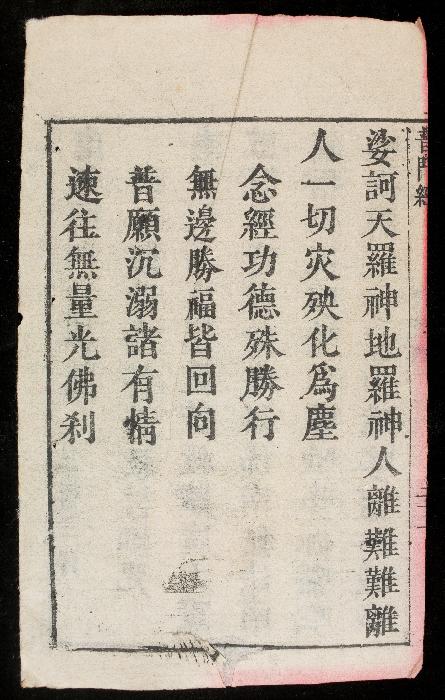 普門經
娑訶天羅神地羅神人離難難離
人一切灾殃化爲塵
念經功德殊勝行
無邊勝福皆回向
普願沉溺諸有情
速往無量光佛刹